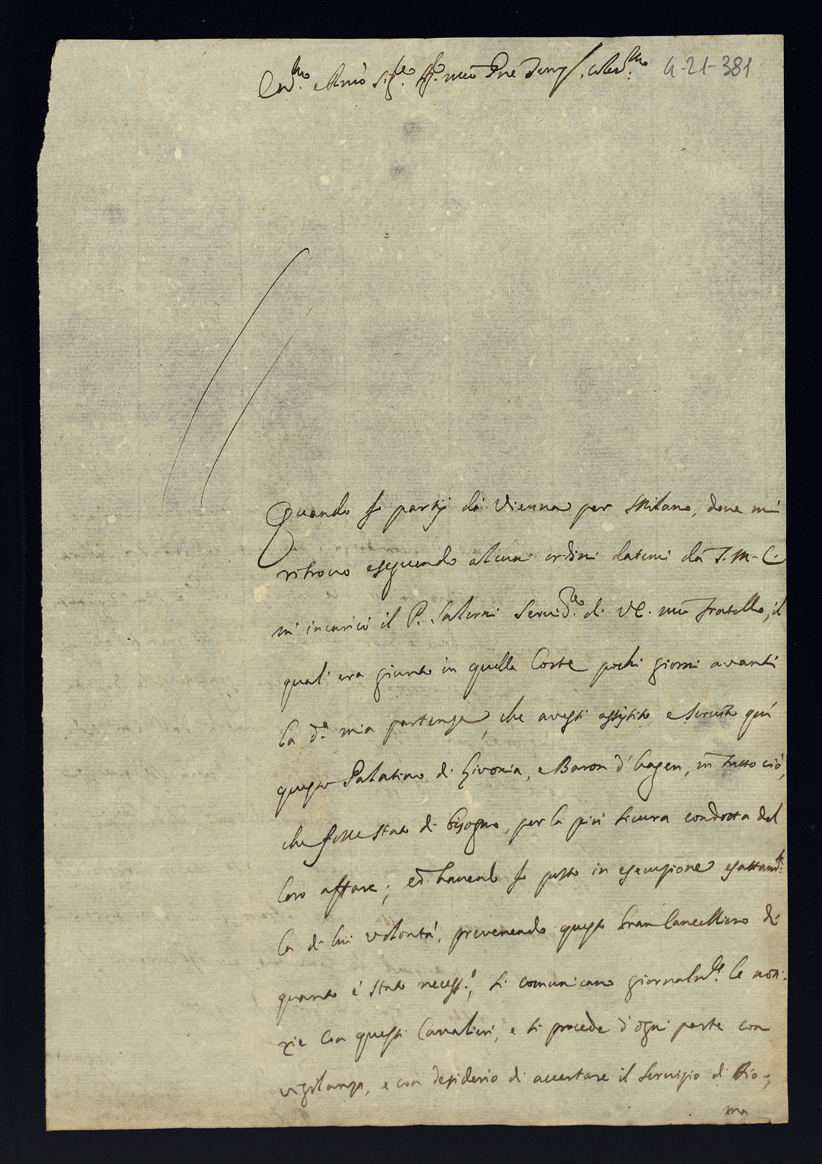 4-21-381
Quando Io partij da Vienna per Milano, dove mi
ritrovo eseguendo alcuni ordini datimi da S. M. C.
mi incaricò il P. Salerni Servid.re di VE. mio fratello, il
qual' era giunto in quella Corte pochi giorni avanti
la d.a mia partenza, che avessi assistito, e servito quì
questo Palatino di Livonia, e Baron d'Hagen, in tutto ciò,
che fosse stato di bisogno, per la più sicura condotta del
loro affare; ed havend' Io posto in esecuzione esattam.te
la di lui volontà, prevenendo questo Gran Cancelliero di
quanto è stato necess.o, si comunicano giornalm.te le noti-
zie con questi Cavalieri, e si procede d'ogni parte con
vigilanza, e con desiderio di accertare il servizio di Dio,
ma